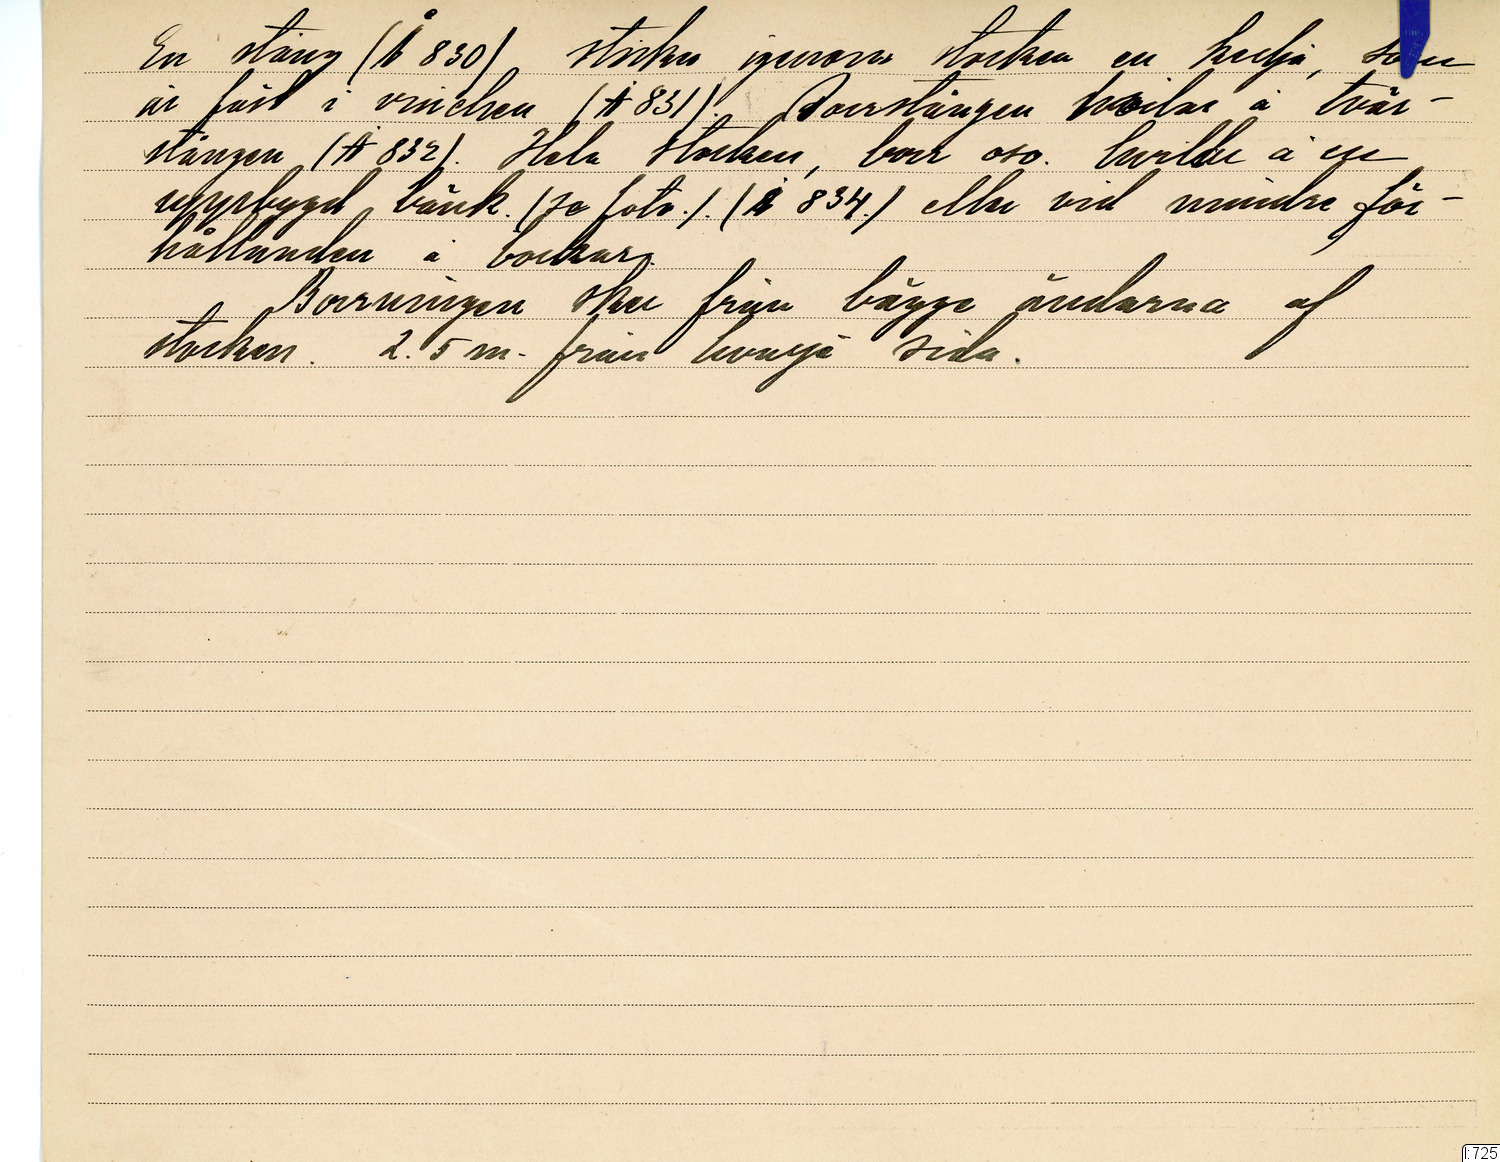 En stång (Å 830) sticker igenom stocken en kedja, som
är fäst i vinchen (Å 831). Borrstången hvilar å tvär-
stången (Å 832). Hela stocken, borr oso. hvilde å en
uppbygd bänk. (se foto.). (Å 834.) eller vid mindre för-
hållanden å bockar.
Borrningen sker från bägge ändarna af
stocken. 2.5 m. från hvarje sida.
I:725